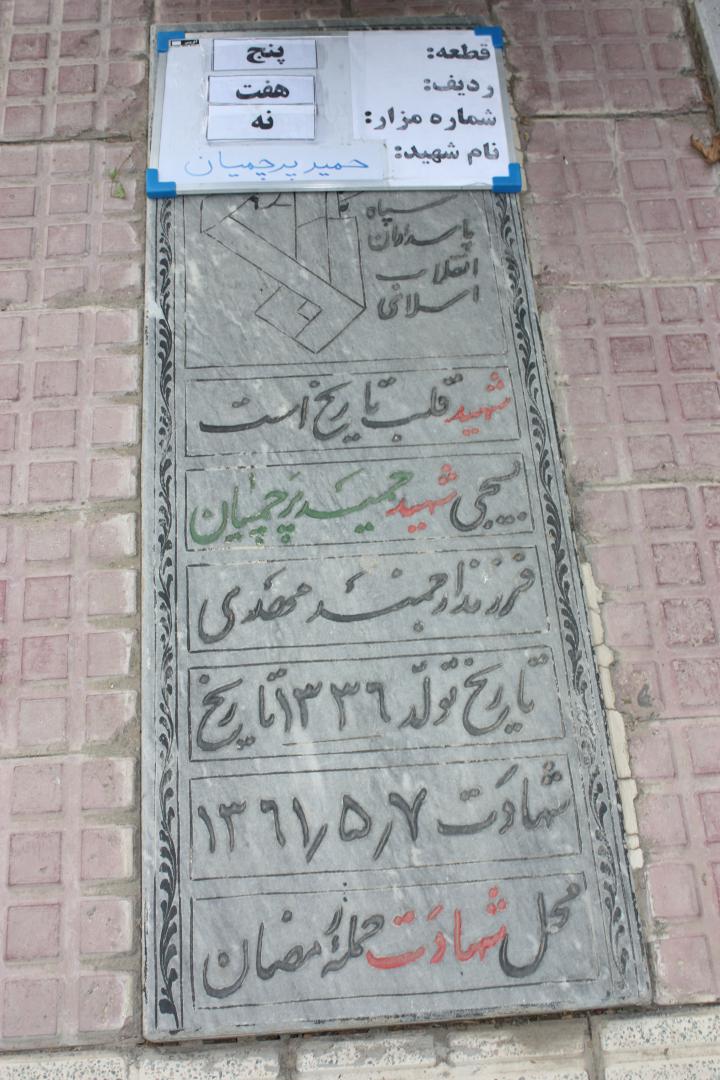 قطعه: پنج
ردیف: هفت
شماره مزار: نه
نام شهید: حمید پرچمیان
سپاه
پاسداران
انقلاب
اسلامی
شهید قلب تاریخ است
بسیجی شهید حمید پرچمیان
فرزند ارجمند مهدی
تاریخ تولد ۱۳۳۶ تاریخ
شهادت ۱۳۶۱/۵/۷
محل شهادت حمله رمضان